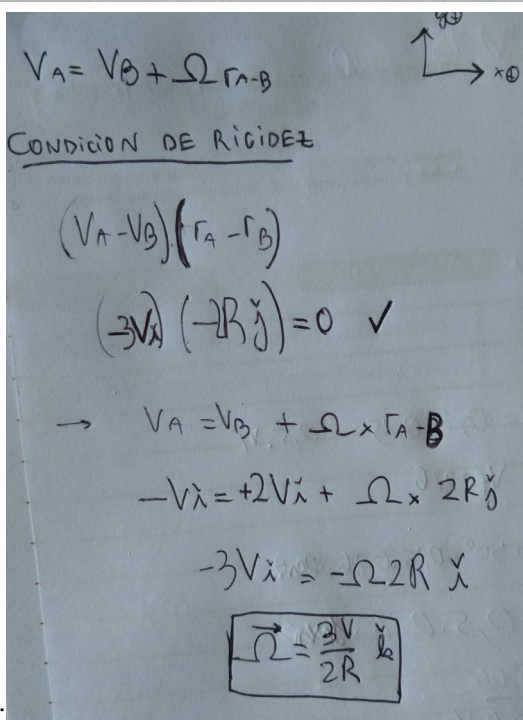 y⊕
x⊕
VA = VB + Ω rA-B
CONDICION DE RIGIDEZ
(VA - VB)(rA - rB)
(-3Vǐ)(-2Rǰ) = 0 ✓
→ VA = VB + Ω × rA-B
-Vǐ = +2Vǐ + Ω × 2Rǰ
-3Vǐ = -Ω2R ǐ
Ω⃗ = 3V/2R ǩ
.